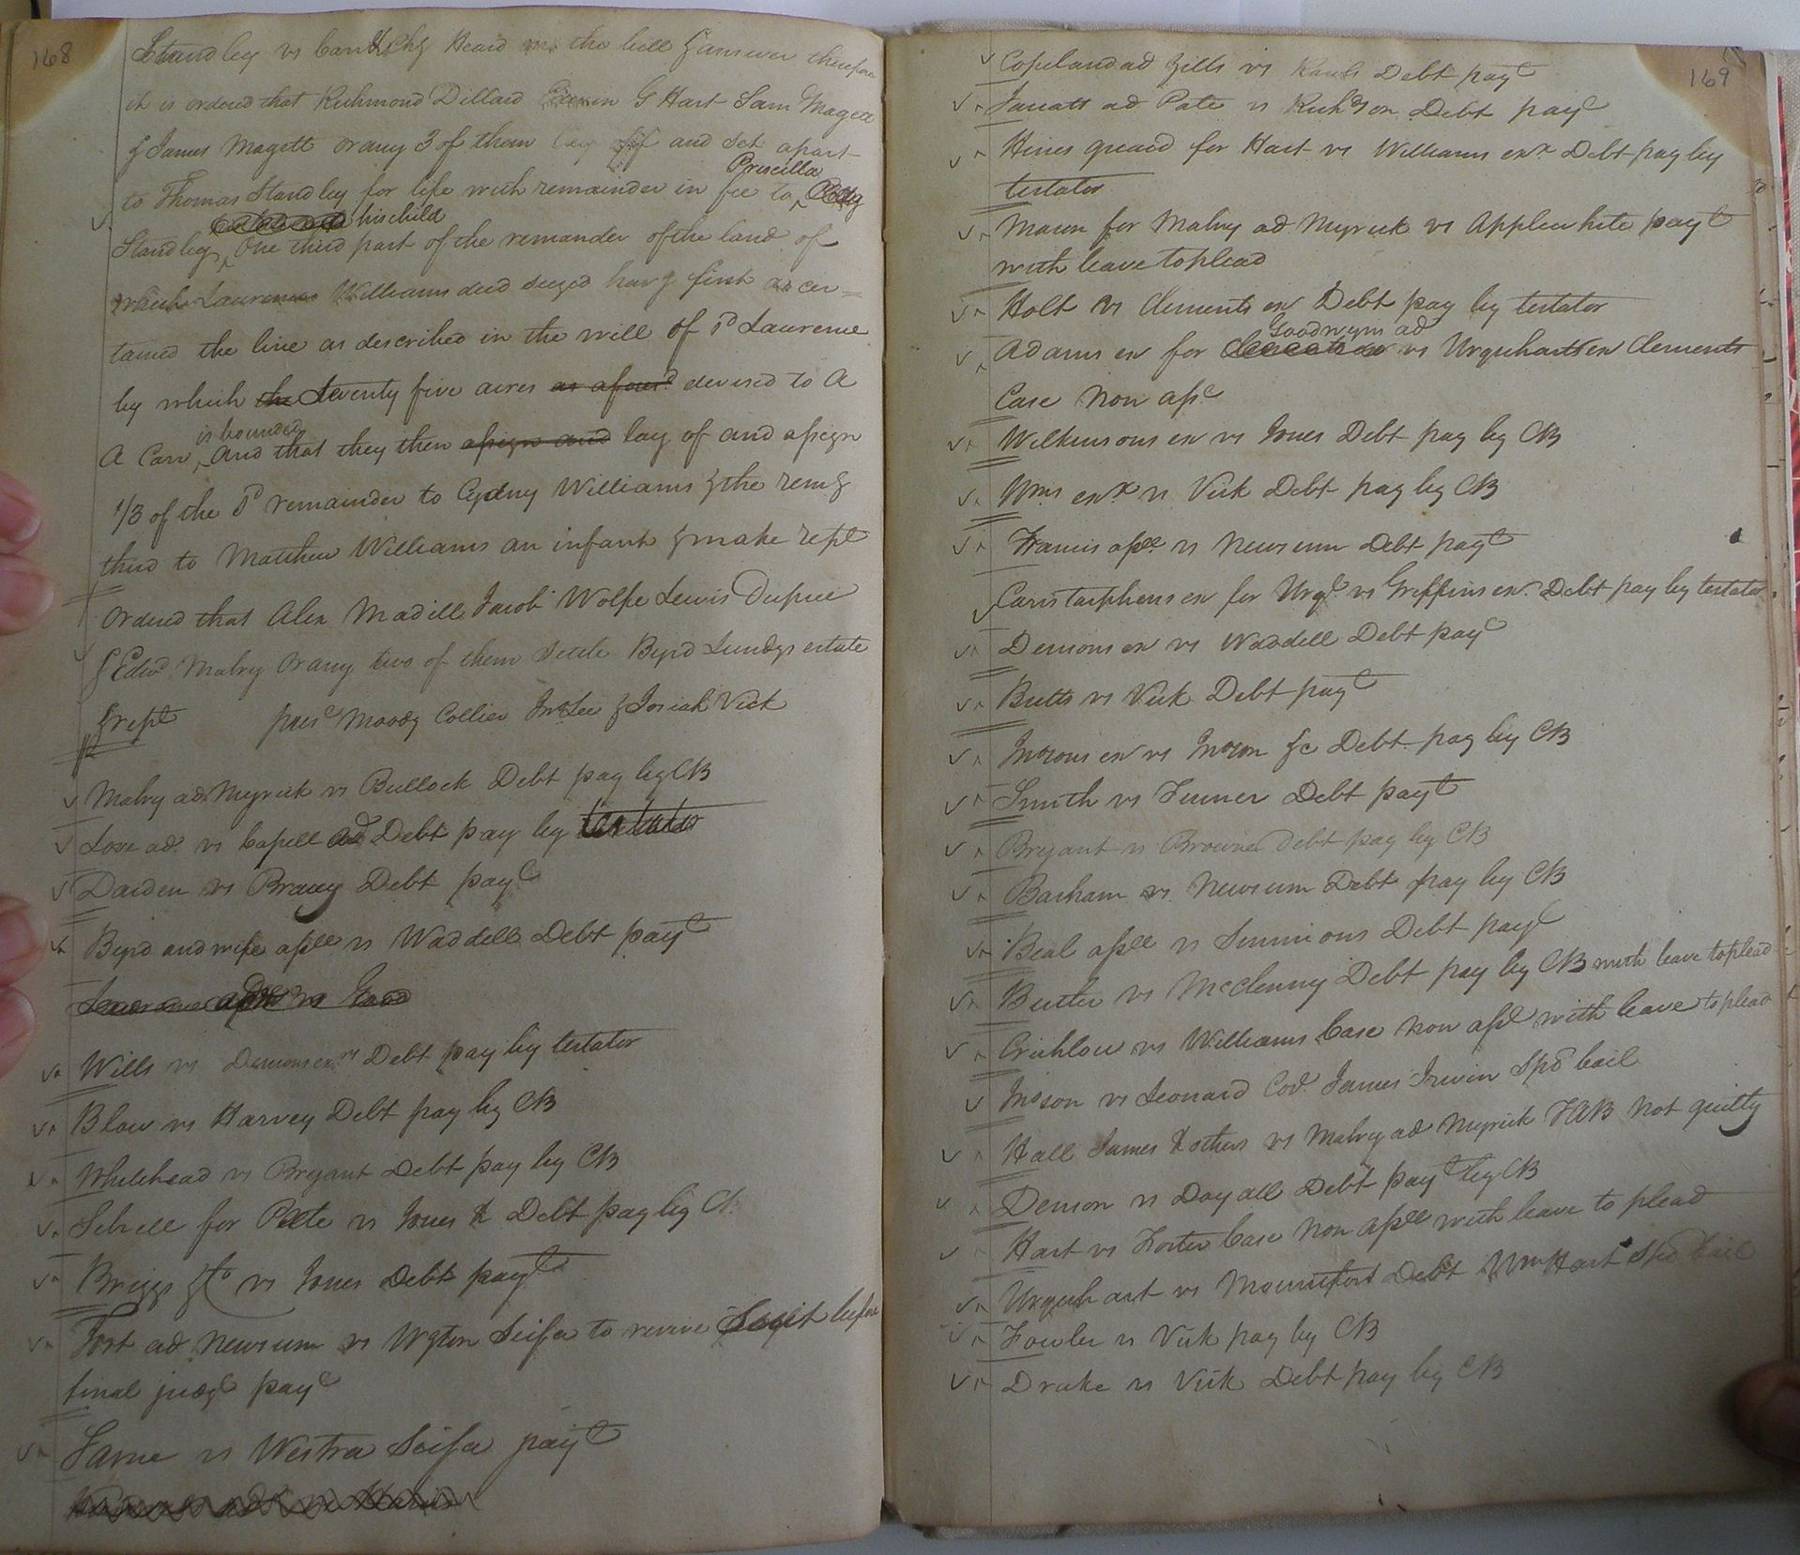 168
Standley vs Carr &c Chy Heard on the bill & answer therefore
it is ordered that Richmond Dillard Edwin G Hart Sam Magett
& James Magett or any 3 of them lay off and set apart
Priscilla
to Thomas Standley for life with remainder in fee to
his child
Standley, One third part of the remainder of the land of
which Laurence Williams died seized havg first ascer=
tained the line as described in the will of sd Laurence
by which the seventy five acres as aforesd devised to A
is bounded
A Carr, and that they then assign and lay of and assign
1/3 of the sd remainder to Cydny Williams & the remg
third to Matthew Williams an infant & make rept
Ordered that Alex Madill Jacob Wolfe Lewis Dupree
& Edwd Malry or any two of them settle Byrd Lundys estate
& rept presd Moody Collier Jno Lee & Josiah Vick
Malry ad Myrick vs Bullock Debt pay by CB
Love ad. vs Capell ad Debt pay by testator
Darden vs Bracy Debt payt
Byrd and wife assee vs Waddell Debt payt
Wills vs Densons exr Debt pay by testator
Blow vs Harvey Debt pay by CB
Whitehead vs Bryant Debt pay by CB
Sebrell for Pete vs Jones & Debt pay by CB
Briggs &c vs Jones Debt payt
Fort ad Newsum vs Wgton Scifa to revive Suit before
final judgt payt
Same vs Westra Scifa payt
169
Copeland ad Gills vs Debt payt
Jarratt ad Pate vs Richdson Debt payt
Hines guard for Hart vs Williams exx Debt pay by
testator
Mason for Malry ad Myrick vs Applewhite payt
with leave to plead
Holt vs Clements ex Debt pay by testator
Goodwyn ad
Adams ex for vs Urquharts ex Clements
Case Non asst
Wilkinsons ex vs Jones Debt pay by CB
Wms exx vs Vick Debt pay by CB
Francis assee vs Newsum Debt payt
Carstarphens ex for Urqt vs Griffins ex. Debt pay by testator
Densons ex vs Waddell Debt payt
Butts vs Vick Debt payt
Jnosons ex vs Jnoson &c Debt pay by CB
Smith vs Turner Debt payt
Bryant vs Browne Debt pay by CB
Barham vs Newsum Debt pay by CB
Beal assee vs Simmons Debt payt
Butler vs McClenny Debt pay by CB with leave to plead
Crichlow vs Williams Case Non asst with leave to plead
Jnoson vs Leonard Covt James Irwin Spd bail
Hall James & others vs Malry ad Myrick TAB Not guilty
Denson vs Doyall Debt payt by CB
Hart vs Foster Case Non asst with leave to plead
Urquhart vs Mountfort Debt Wm Hart Spd bail
Fowler vs Vick pay by CB
Drake vs Vick Debt pay by CB